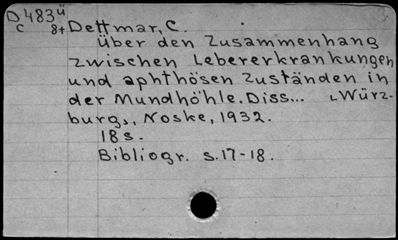 D483ü
c 8+ Dettmar, C.
Über den Zusammenhang
zwischen Lebererkrankungen
und aphthösen Zuständen in
der Mundhöhle. Diss... Würz-
burg, Noske, 1932.
18 s.
Bibliogr. s. 17-18.